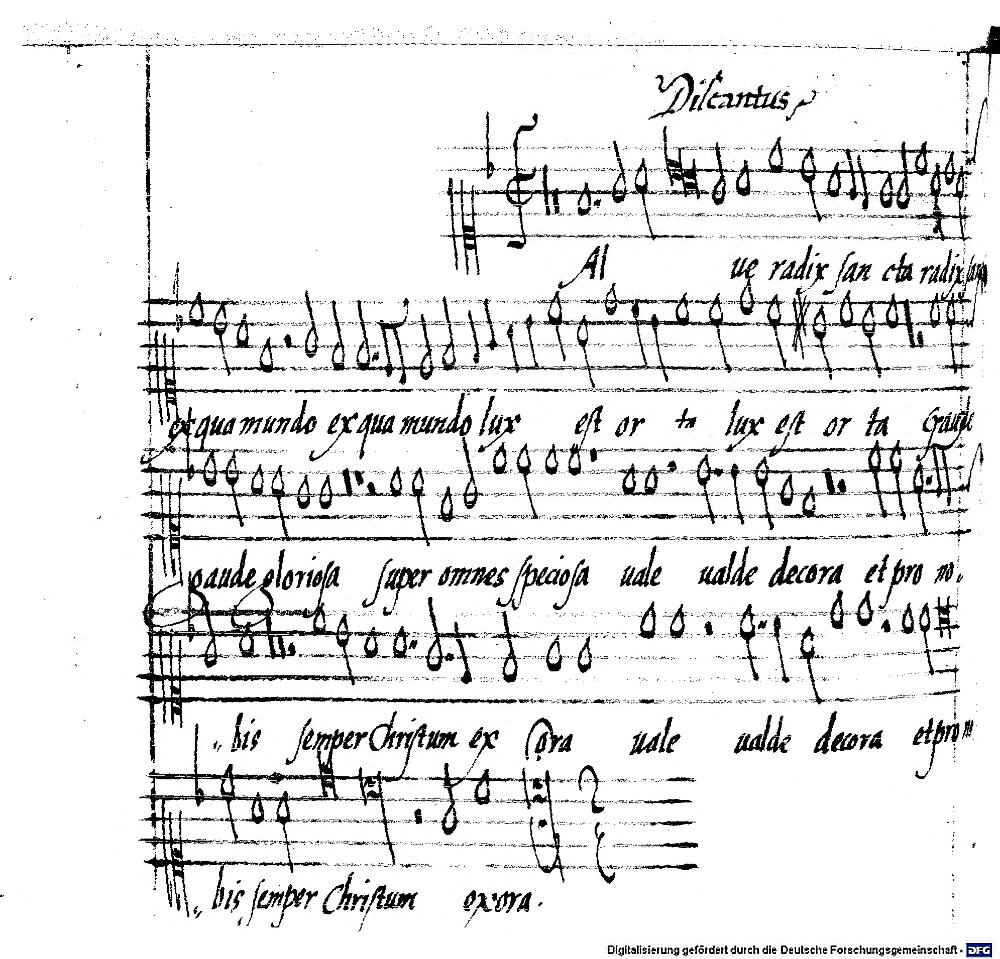 Discantus
Al ue radix san cta radix san
ex qua mundo ex qua mundo lux est or ta lux est or ta Gaude
gaude gloriosa super omnes speciosa uale ualde decora et pro no„
„bis semper Christum ex Ora uale ualde decora et pro n
„bis semper Christum exora.
Digitalisierung gefördert durch die Deutsche Forschungsgemeinschaft - DFG